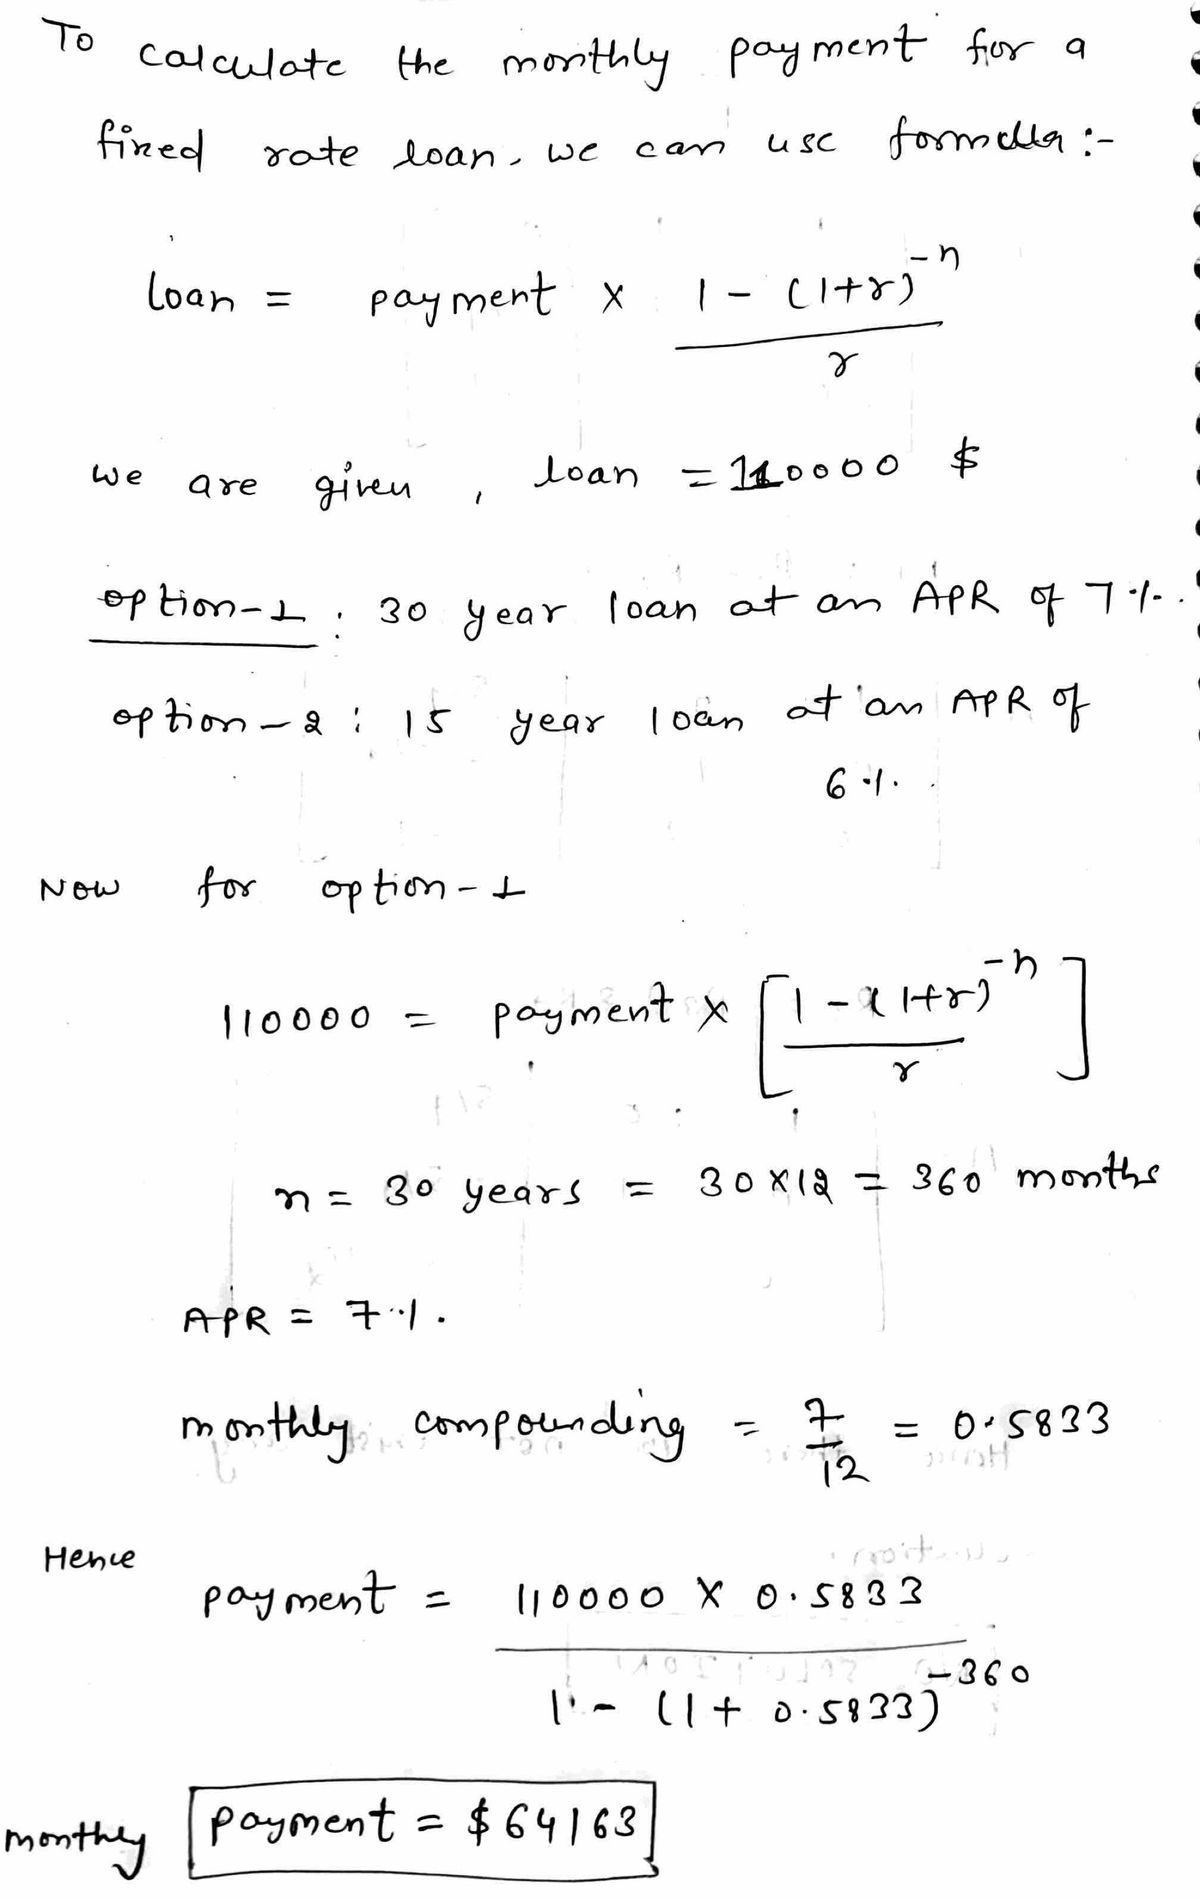 To calculate the monthly payment for a
fixed rate loan, we can use formula :-
loan = payment × 1 - (1+r)^-n / r
we are given , loan = 110000 $
option-1 : 30 year loan at an APR of 7%.
option-2 : 15 year loan at an APR of
6%.
Now for option-1
110000 = payment × [1 - (1+r)^-n / r]
n = 30 years = 30×12 = 360 months
APR = 7%.
monthly compounding = 7/12 = 0.5833
Hence
payment = 110000 × 0.5833 / 1 - (1 + 0.5833)^-360
monthly payment = $64163